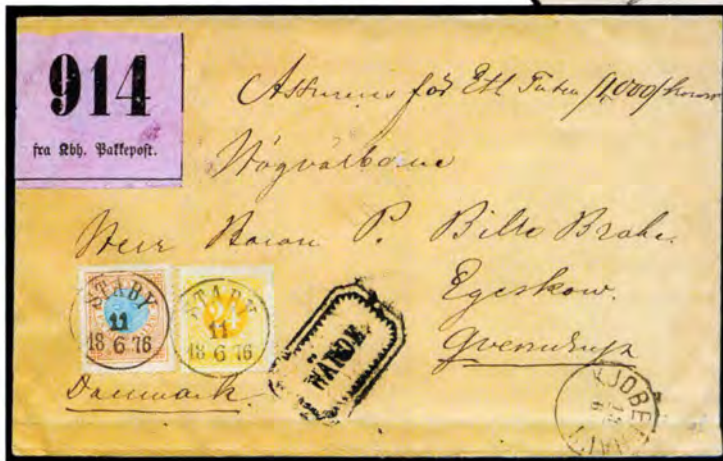 914
fra Kbh. Pakkepost.
Assurans för Ett Tusen /1,000/ kronor
Högvälborne
Herr Baron P. Bille Brahe.
Egeskow.
Qverndrup
Danmark.
STABY
11
18 6 76
STABY
24
11
18 6 76
VÄRDE